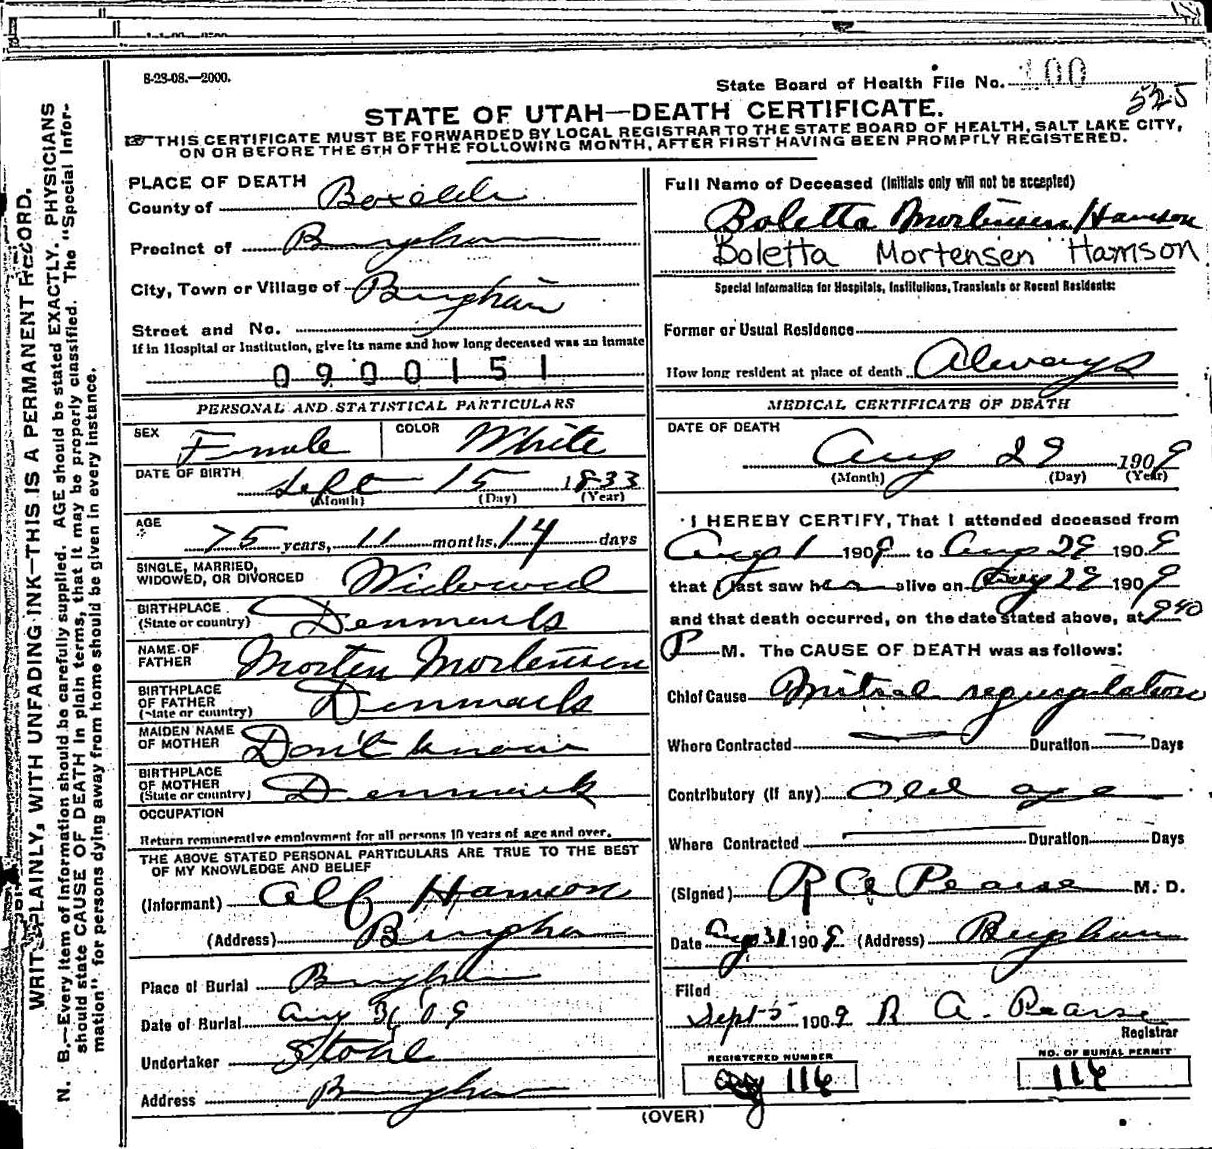 8-23-08.—2000.
State Board of Health File No. 100
525
STATE OF UTAH—DEATH CERTIFICATE.
THIS CERTIFICATE MUST BE FORWARDED BY LOCAL REGISTRAR TO THE STATE BOARD OF HEALTH, SALT LAKE CITY,
ON OR BEFORE THE 5TH OF THE FOLLOWING MONTH, AFTER FIRST HAVING BEEN PROMPTLY REGISTERED.
WRITE PLAINLY, WITH UNFADING INK—THIS IS A PERMANENT RECORD.
N. B.—Every item of information should be carefully supplied. AGE should be stated EXACTLY. PHYSICIANS
should state CAUSE OF DEATH in plain terms, that it may be properly classified. The "Special Infor-
mation" for persons dying away from home should be given in every instance.
PLACE OF DEATH
County of Boxelder
Precinct of Brigham
City, Town or Village of Brigham
Street and No.
If in Hospital or Institution, give its name and how long deceased was an inmate
0900151
PERSONAL AND STATISTICAL PARTICULARS
SEX Female COLOR White
DATE OF BIRTH
Sept 15 1833
(Month) (Day) (Year)
AGE
75 years, 11 months, 14 days
SINGLE, MARRIED,
WIDOWED, OR DIVORCED Widowed
BIRTHPLACE
(State or country) Denmark
NAME OF
FATHER Morten Mortensen
BIRTHPLACE
OF FATHER
(State or country) Denmark
MAIDEN NAME
OF MOTHER Don't know
BIRTHPLACE
OF MOTHER
(State or country) Denmark
OCCUPATION
Return remunerative employment for all persons 10 years of age and over.
THE ABOVE STATED PERSONAL PARTICULARS ARE TRUE TO THE BEST
OF MY KNOWLEDGE AND BELIEF
(Informant) Alf Hamson
(Address) Brigham
Place of Burial Brigham
Date of Burial Aug 31, 09
Undertaker Stohl
Address Brigham
Full Name of Deceased (Initials only will not be accepted)
Boletta Mortensen Hamson
Boletta Mortensen Hamson
Special Information for Hospitals, Institutions, Transients or Recent Residents:
Former or Usual Residence
How long resident at place of death Always
MEDICAL CERTIFICATE OF DEATH
DATE OF DEATH
Aug 29 1909
(Month) (Day) (Year)
I HEREBY CERTIFY, That I attended deceased from
Aug 1 1909 to Aug 29 1909
that I last saw her alive on Aug 29 1909
and that death occurred, on the date stated above, at 9 40
P M. The CAUSE OF DEATH was as follows:
Chief Cause Mitral regurgitation
Where Contracted Duration Days
Contributory (If any) Old age
Where Contracted Duration Days
(Signed) R A Pearse M. D.
Date Aug 31 1909 (Address) Brigham
Filed
Sept 5 1909 R A. Pearse
Registrar
REGISTERED NUMBER
116
NO. OF BURIAL PERMIT
116
(OVER)